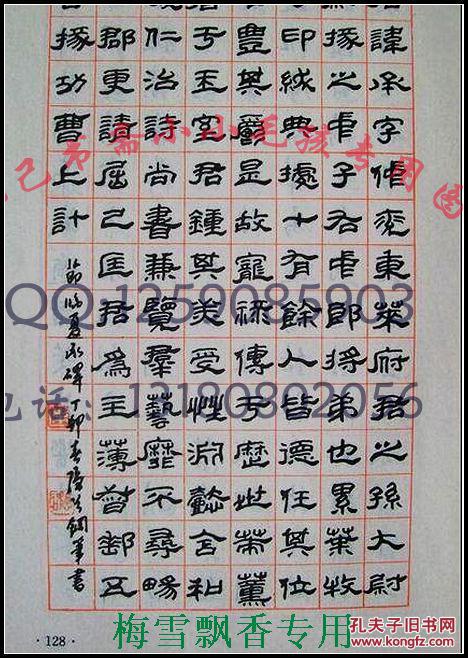 諱承字仲兗東萊府君之孫大尉
掾之中子右中郎將弟也累葉牧
印紱典據十有餘人皆德任其位
豐其爵是故寵祿傳于歷世策薰
于王室君鍾其美受性淵懿含和
仁治詩尚書兼覽羣藝靡不尋暢
郡更請屈己匡君為主薄督郵五
掾功曹上計
節臨夏承碑 丁卯春 書
小小毛孩专用图
QQ:1259085903
电话:13180802056
·128·
梅雪飘香专用
孔夫子旧书网